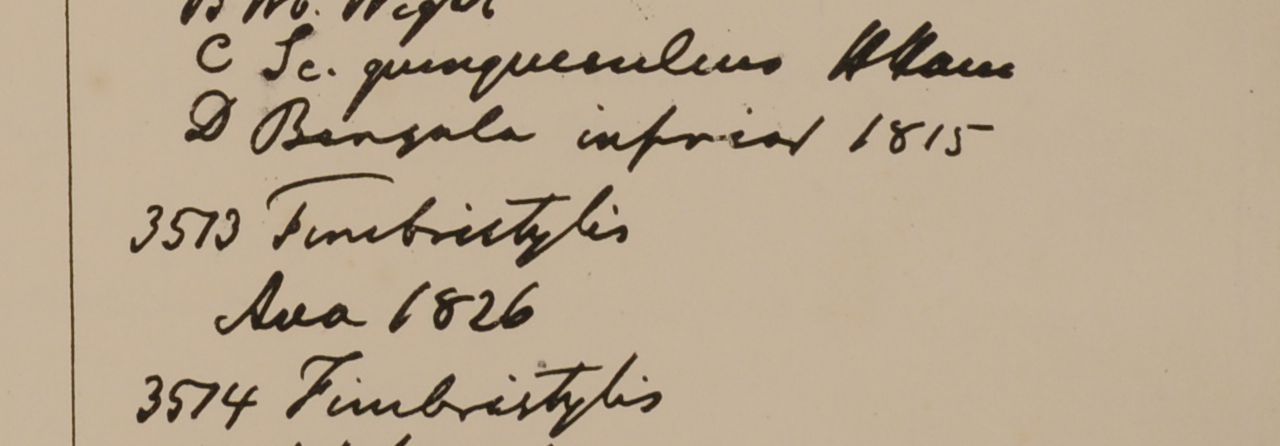 B Hb. Wight
C Sc. quinquesulcus HHam
D Bengala inferior 1815
3513 Fimbristylis
Ava 1826
3514 Fimbristylis